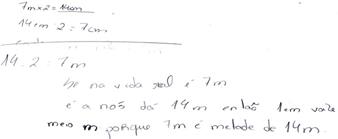 7m×2 = 14cm
14cm : 2 = 7cm
14 : 2 = 7m
se na vida real é 7m
é a nós dá 14m então 1cm vale
meio m porque 7m é metade de 14m.